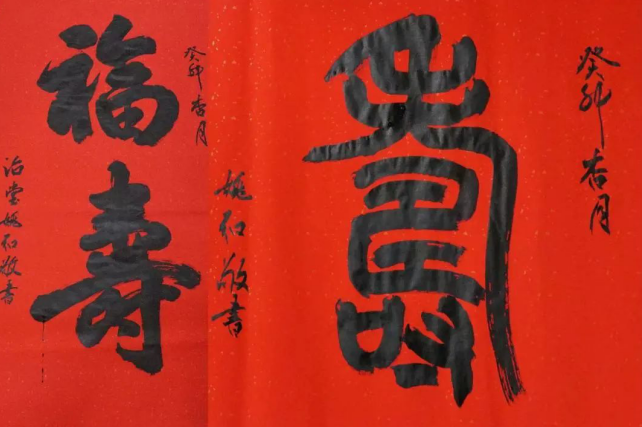 癸卯杏月
壽
姚和敬書
癸卯杏月
福壽
治堂姚和敬書